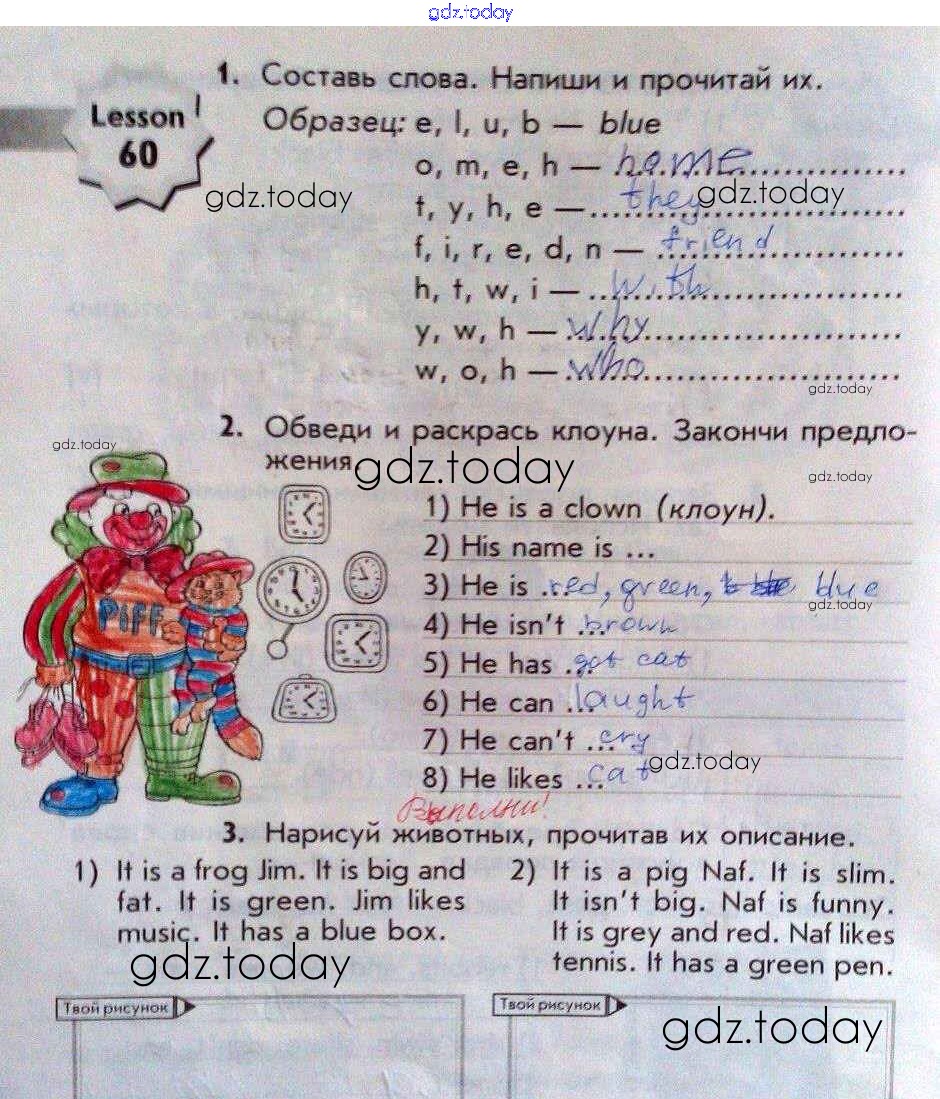 gdz.today
1. Составь слова. Напиши и прочитай их.
Lesson 60
Образец: e, l, u, b — blue
o, m, e, h — home
gdz.today gdz.today
t, y, h, e — they
f, i, r, e, d, n — friend
h, t, w, i — with
y, w, h — why
w, o, h — who
gdz.today
2. Обведи и раскрась клоуна. Закончи предло-
gdz.today
жения
gdz.today gdz.today
1) He is a clown (клоун).
2) His name is ...
3) He is ... red, green, blue
gdz.today
4) He isn't ... brown
PIFF
5) He has ... got cat
6) He can ... laught
7) He can't ... cry
gdz.today
8) He likes ... cat
Выполни!
3. Нарисуй животных, прочитав их описание.
1) It is a frog Jim. It is big and
fat. It is green. Jim likes
music. It has a blue box.
2) It is a pig Naf. It is slim.
It isn't big. Naf is funny.
It is grey and red. Naf likes
tennis. It has a green pen.
gdz.today
Твой рисунок
Твой рисунок
gdz.today